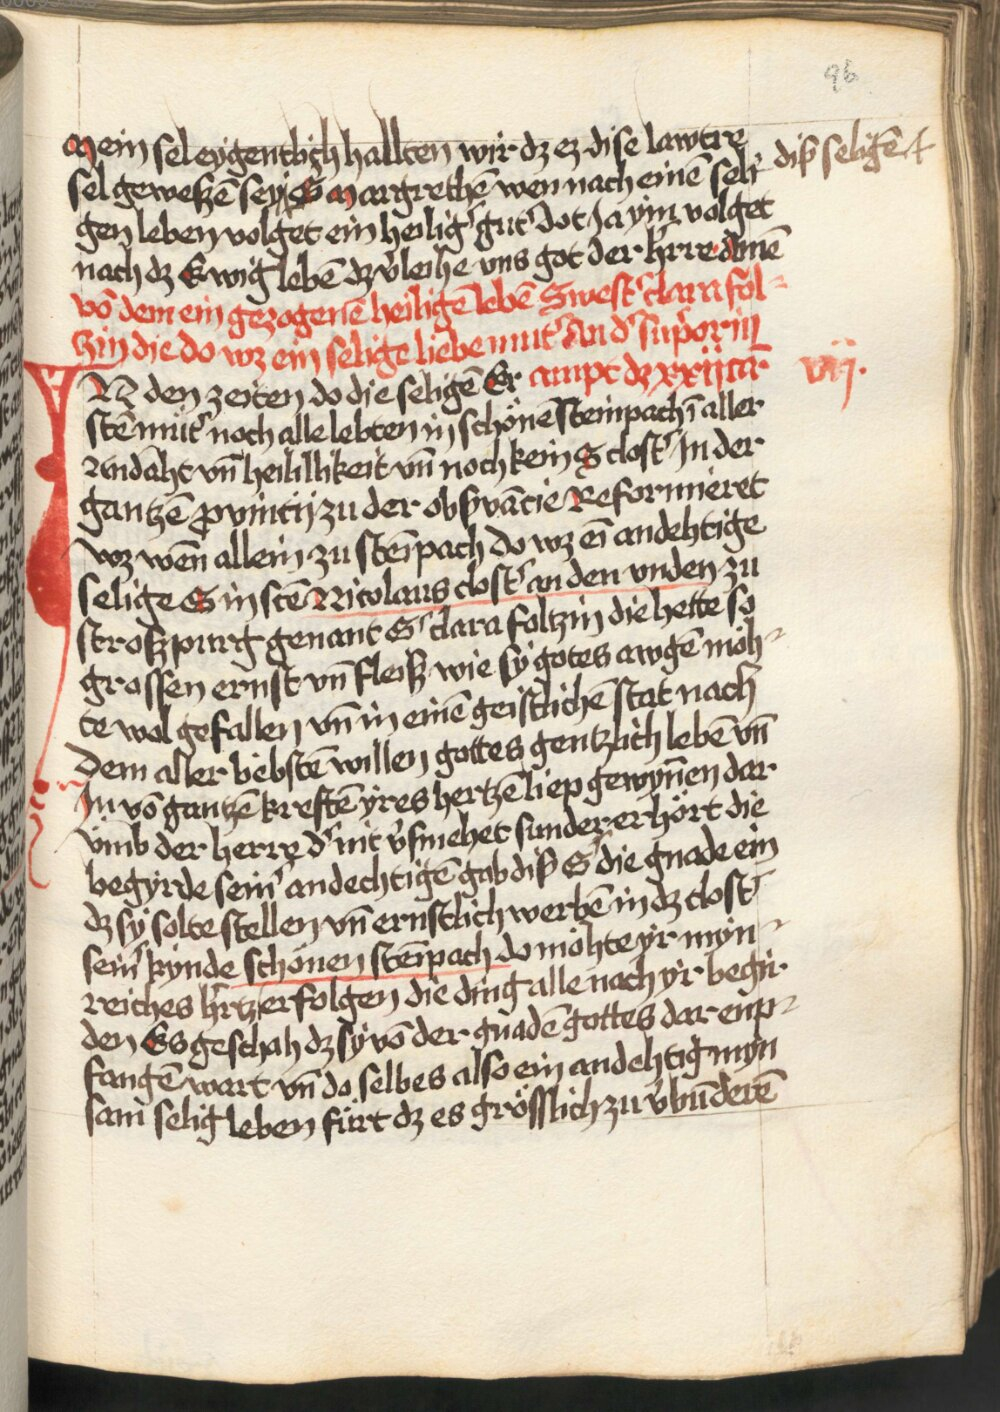 96
mein sel eygentlich hallten wir dz ez dise lawtre
sel geweszē sey S margrethē wen nach einē seli
diß seligē +
gen leben volget ein heilig gut dot Ja ym volget
nach dz Ewig lebē dz v̉leihe vns got der h̉rre Amē
võ dem ein gezogenē heiligē lebē Swest clara fol-
tzin die do wz ein selige liebe mut̉ An d̉ suporin
ampt dz xxiij car
vij.
IN den zeiten do die seligē Er
stē müt̉ noch alle lebten in schönē Steinpach ī aller
Andāht vn̄ heilillikeit vn̄ noch kein S clost̉ In der
gantzē provincij zu der obsvācie Reformieret
wz wen̄ allein zu stēīpach do wz eī andehtige
selige S in stē Nicolaus clost̉ an den vnden zu
stroszpurg genant S̉ clara foltzin die hette so
grossen ernst vn̄ fleiß wie sy gotes awgē möh-
te wol gefallen vn̄ in einē geistlichē stat nach
Dem aller liebstē willen gottes gentzlich lebē vn̄
In võ gantzē kreftē yres hertzē liep gewyn̄en dar
v̄mb der herre d̉ nit v̉smehet sunder erhört die
begyrde sein̉ andechtigē gab diß S̉ die gnade ein
dz sy solte stellen vn̄ ernstlich werbē in dz clost̉
sein̉ kynde schönen stēīpach do möhte yr myn-
reiches h̉rtz erfolgen die ding alle nach yr begir
den Es geschah dz sy võ der gnadē gottes dar enp-
fangē wart vn̄ do selbes also ein andehtig myn
sam selig leben fürt dz es grösslich zu v̉būderē